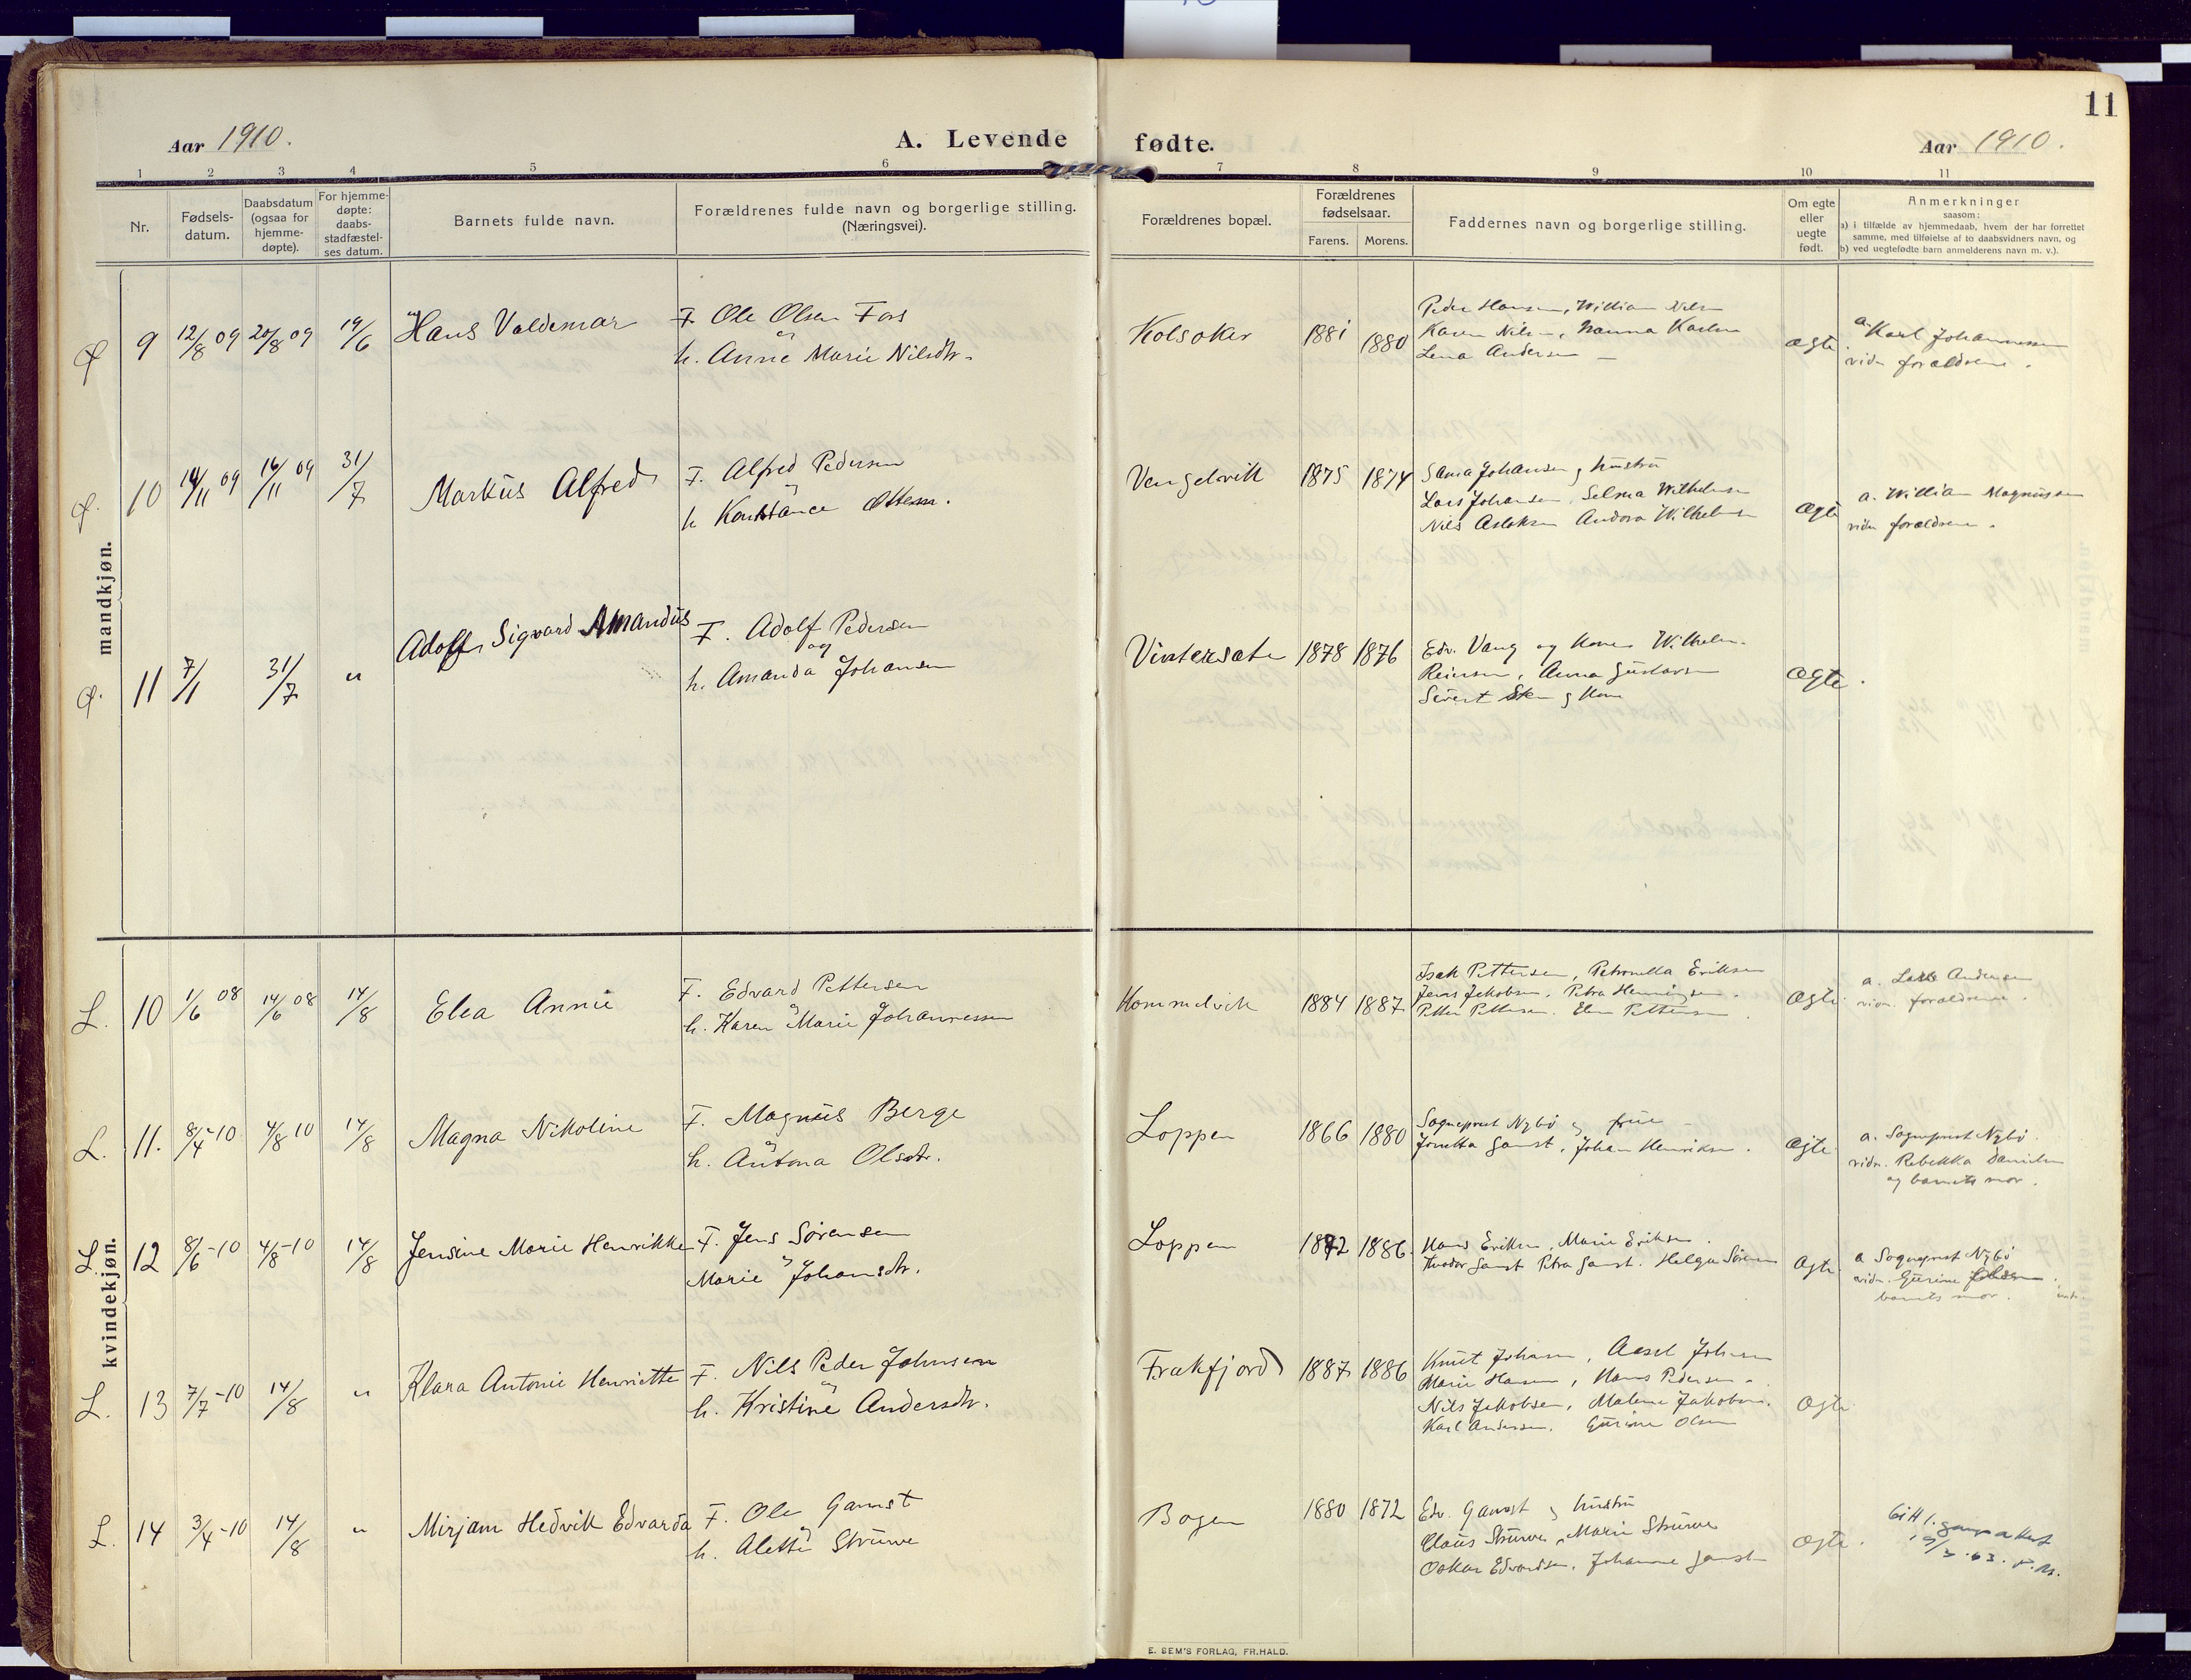 11
Aar 1910.
A. Levende fødte.
Aar 1910.
1 2 3 4 5 6 7 8 9 10 11
Nr.
Fødsels-
datum.
Daabsdatum
(ogsaa for
hjemme-
døpte).
For hjemme-
døpte:
daabs-
stadfæstel-
ses datum.
Barnets fulde navn.
Forældrenes fulde navn og borgerlige stilling.
(Næringsvei).
Forældrenes bopæl.
Forældrenes
fødselsaar.
Farens. Morens.
Faddernes navn og borgerlige stilling.
Om egte
eller
uegte
født.
Anmerkninger
saasom:
a) i tilfælde av hjemmedaab, hvem der har forrettet
samme, med tilføielse af to daabsvidners navn, og
b) ved uegtefødte barn anmelderens navn m. v.).
mandkjøn.
9 12/8 09 20/8 09 19/6 Hans Valdemar
F. Ole Olsen Fos
og
h. Anne Marie Nilsdtr.
Kolsoker 1881 1880
Peder Hansen, William Nilsen
Karen Nilsen, Nanna Karlsen
Lena Andersen
ægte
a. Karl Johannessen
vidn forældrene.
10 14/11 09 16/11 09 31/7 Markus Alfred
F. Alfred Pedersen
h Konstance Ottesen.
Vengelvik 1875 1874
Johansen og hustru
Lars Johansen, Selma Wilhelmsen
Nils Aslaksen Andora Wilhelmsen
ægte
a. William Magnussen
vidn forældrene.
11 7/1 31/7 " Adolf Sigvard Amandus
F. Adolf Pedersen
og
h. Amanda Johansen
Vintersæte 1878 1876
Edv. Vang og Kone Wilhelm
Reiersen, Anna Gustavsen
Sivert og Kone
ægte.
kvindekjøn.
L. 10 1/6 08 14/6 08 14/8 Elea Annie
F. Edvard Pettersen
h. Karen Marie Johannessen
Kommelvik 1884 1887
Isak Pettersen, Petronella Eriksen
Jens Jakobsen, Petra Henningsen.
Petter Pettersen. Pettersen
ægte
a. Andersen
vidn. forældrene.
L. 11. 8/4-10 4/8 10 14/8 Magna Nikoline
F. Magnus Berge
og
h. Antona Olsdtr.
Loppen 1866 1880
Sogneprest Nybø og frue
Jonetta Gamst, Johan Henriksen.
ægte
a. Sogneprest Nybø.
vidn. Rebekka Danielsen
og barnets mor.
L. 12 8/6-10 4/8-10 14/8 Jensine Marie Henrikke
F. Jens Sørensen
Marie Johansdtr.
Loppen 1882 1886.
Hans Eriksen, Marie Eriksen.
Theodor Gamst Petra Gamst. Helga Sørensen
ægte
a Sogneprest Nybø
vidn. Gurine
barnets mor.
L. 13 7/7-10 14/8 " Klara Antonie Henriette
F. Nils Peder Johnsen
og
h. Kristine Andersdtr.
Frakfjord 1887 1886
Knut Johansen, Aksel Johnsen
Marie Hansen, Hans Pedersen.
Nils Jakobsen, Malene Jakobsen.
Karl Andersen. Gurine Olsen
ægte
L. 14 3/4-10 14/8 " Mirjam Hedvik Edvarda
F. Ole Gamst
og
h. Alette Struwe
Bogen 1880 1872
Edv. Gamst og hustru
Claus Struwe, Marie Struwe
Oskar Edvardsen. Johanne Gamst
ægte.
E. SEM'S FORLAG, FR.HALD.